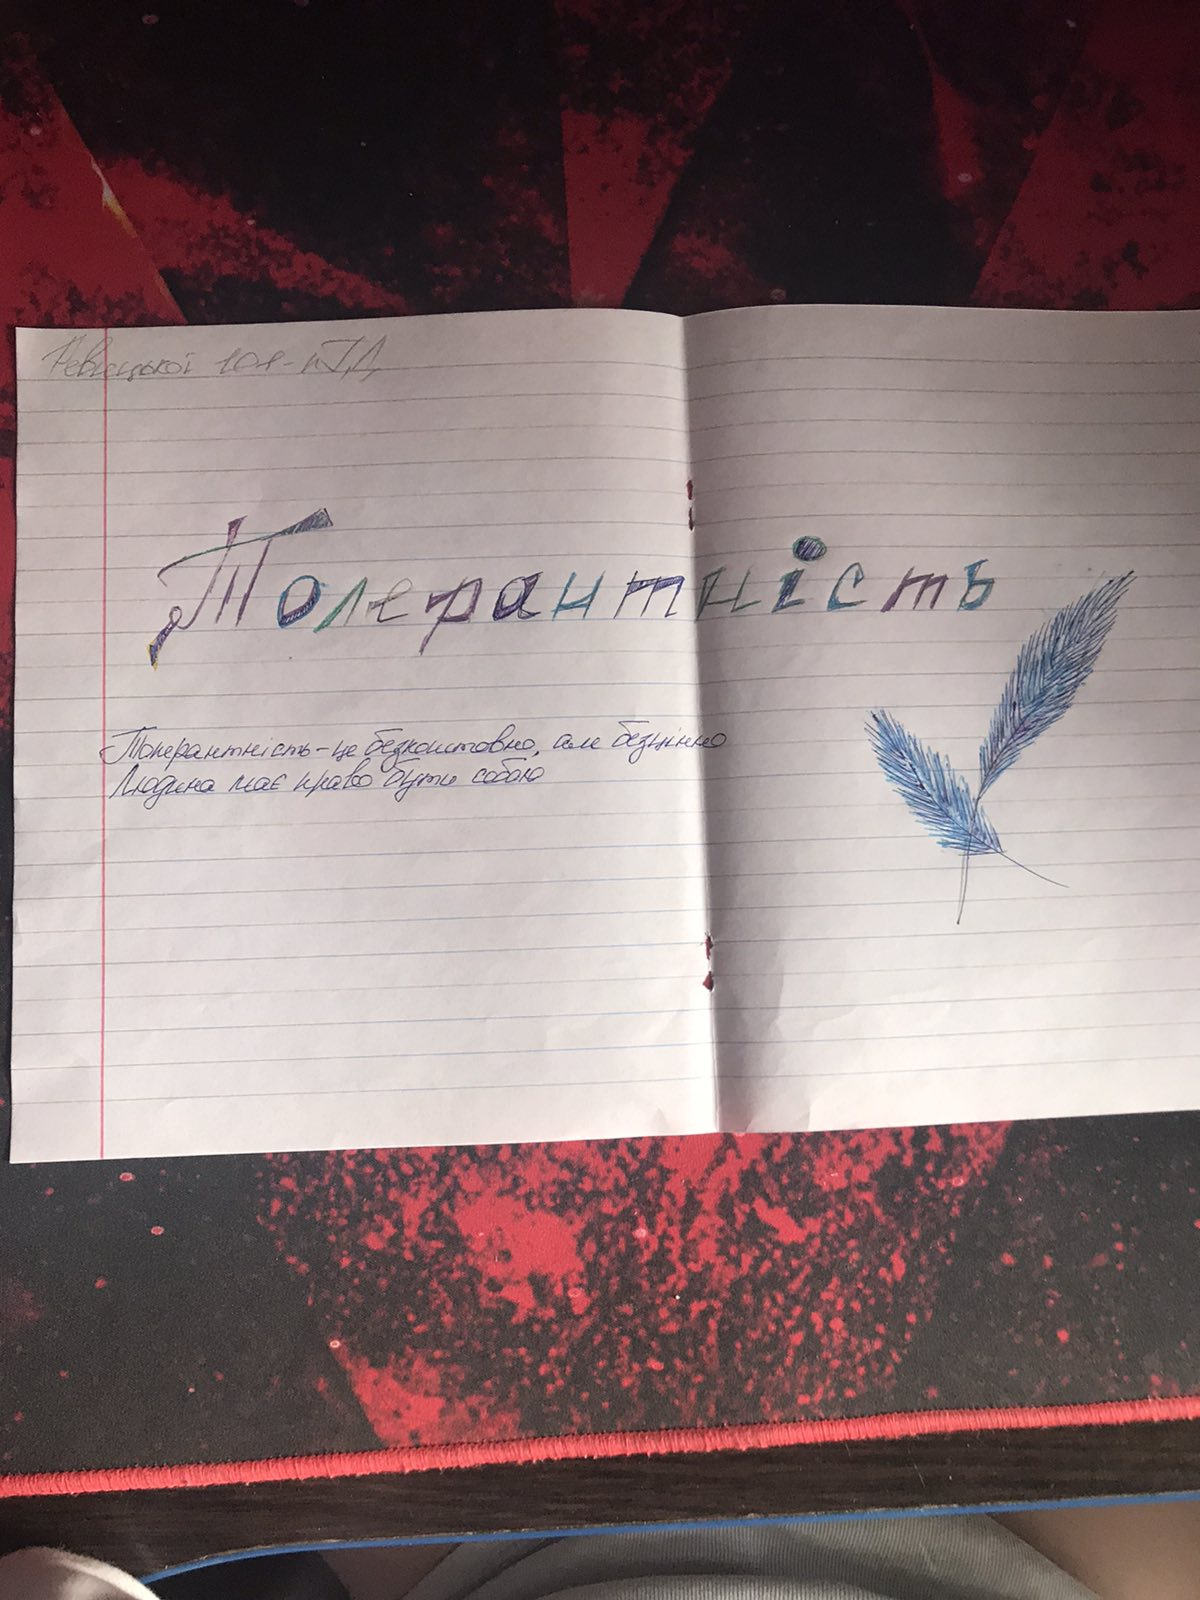 101-
Толерантність
Толерантність - це безкоштовно, але безцінно
Людина має право бути собою